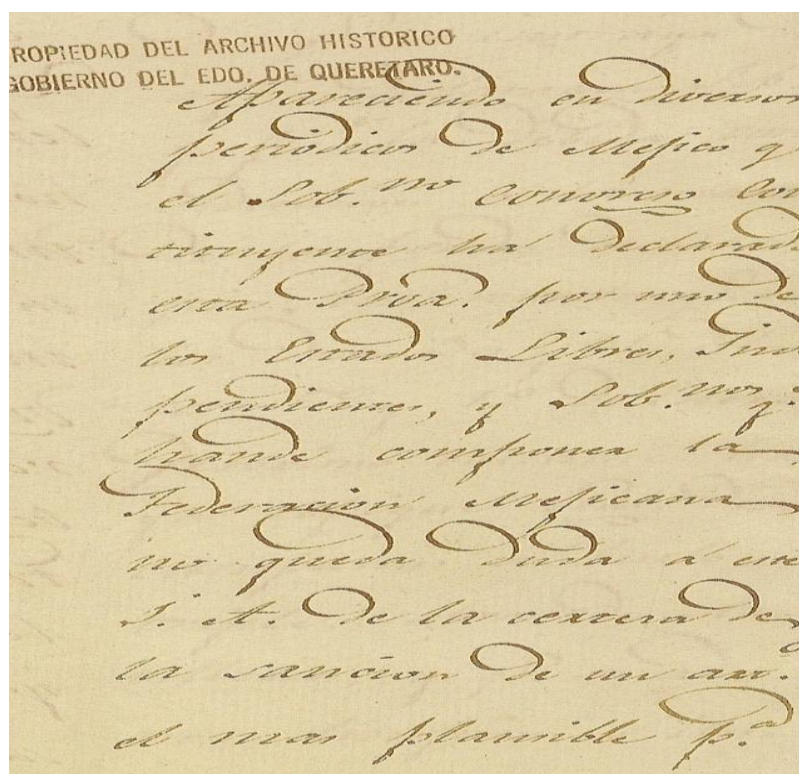 ROPIEDAD DEL ARCHIVO HISTORICO
GOBIERNO DEL EDO. DE QUERETARO.
Apareciendo en diversos
periodicos de Mejico q
el Sob.no Congreso Con
tituyente há declarad
esta Prov.a por uno de
los Estados Libres, Ind
pendientes, y Sob.nos q.
hande componer la
Federacion Mejicana
no queda duda á este
I. A. de la certeza de
la sancion de un art.
el mas plausible p.a